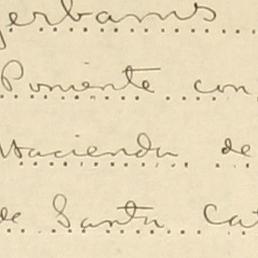 yerbanis
Poniente con
Hacienda de
de Santa Cat